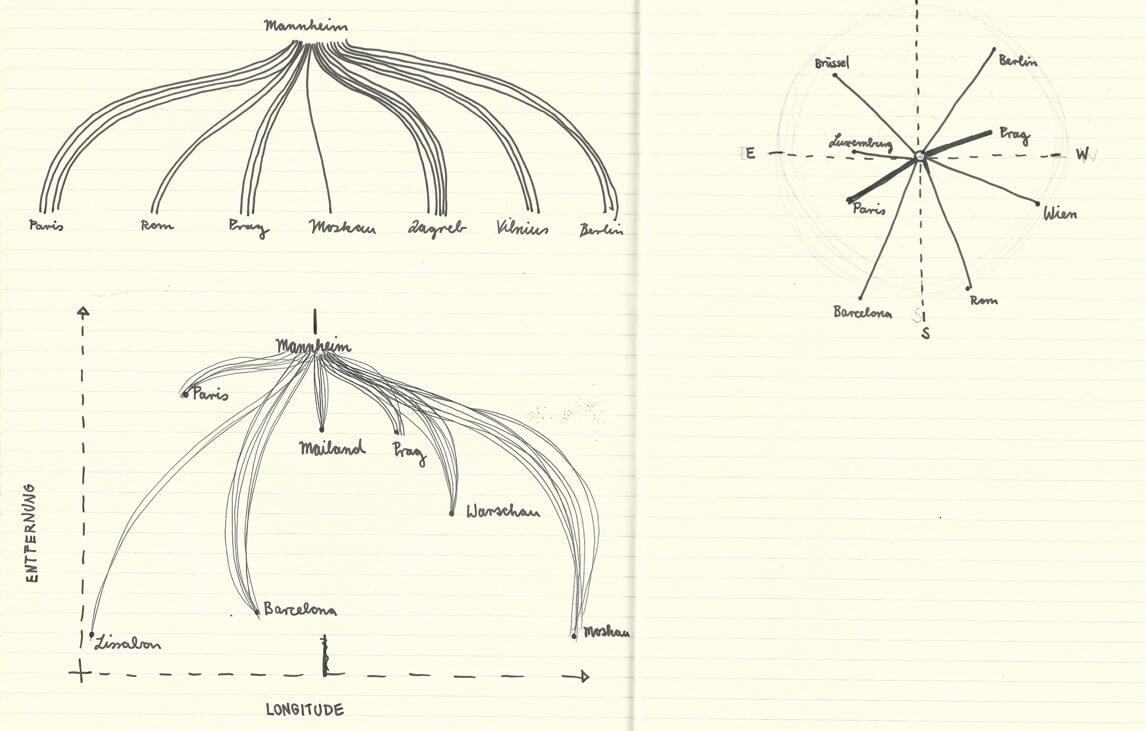 Mannheim
Paris
Rom
Prag
Moskau
Zagreb
Vilnius
Berlin
Mannheim
Paris
Mailand
Prag
Warschau
Barcelona
Lissabon
Moskau
ENTFERNUNG
LONGITUDE
Brüssel
Berlin
Luxemburg
Prag
E
W
Paris
Wien
Barcelona
Rom
S